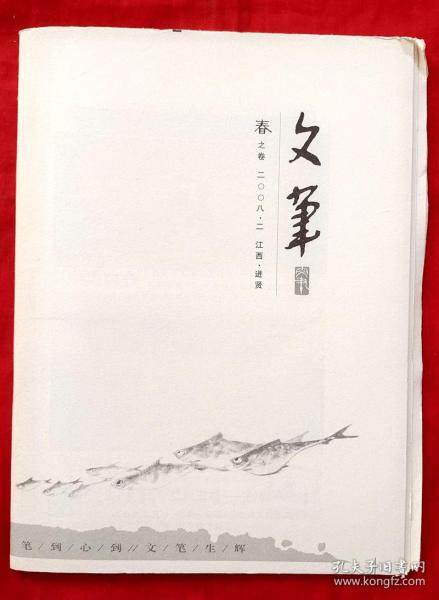 文笔
春之卷 二〇〇八·二 江西·进贤
笔/到/心/到//文/笔/生/辉
孔夫子旧书网
www.kongfz.com